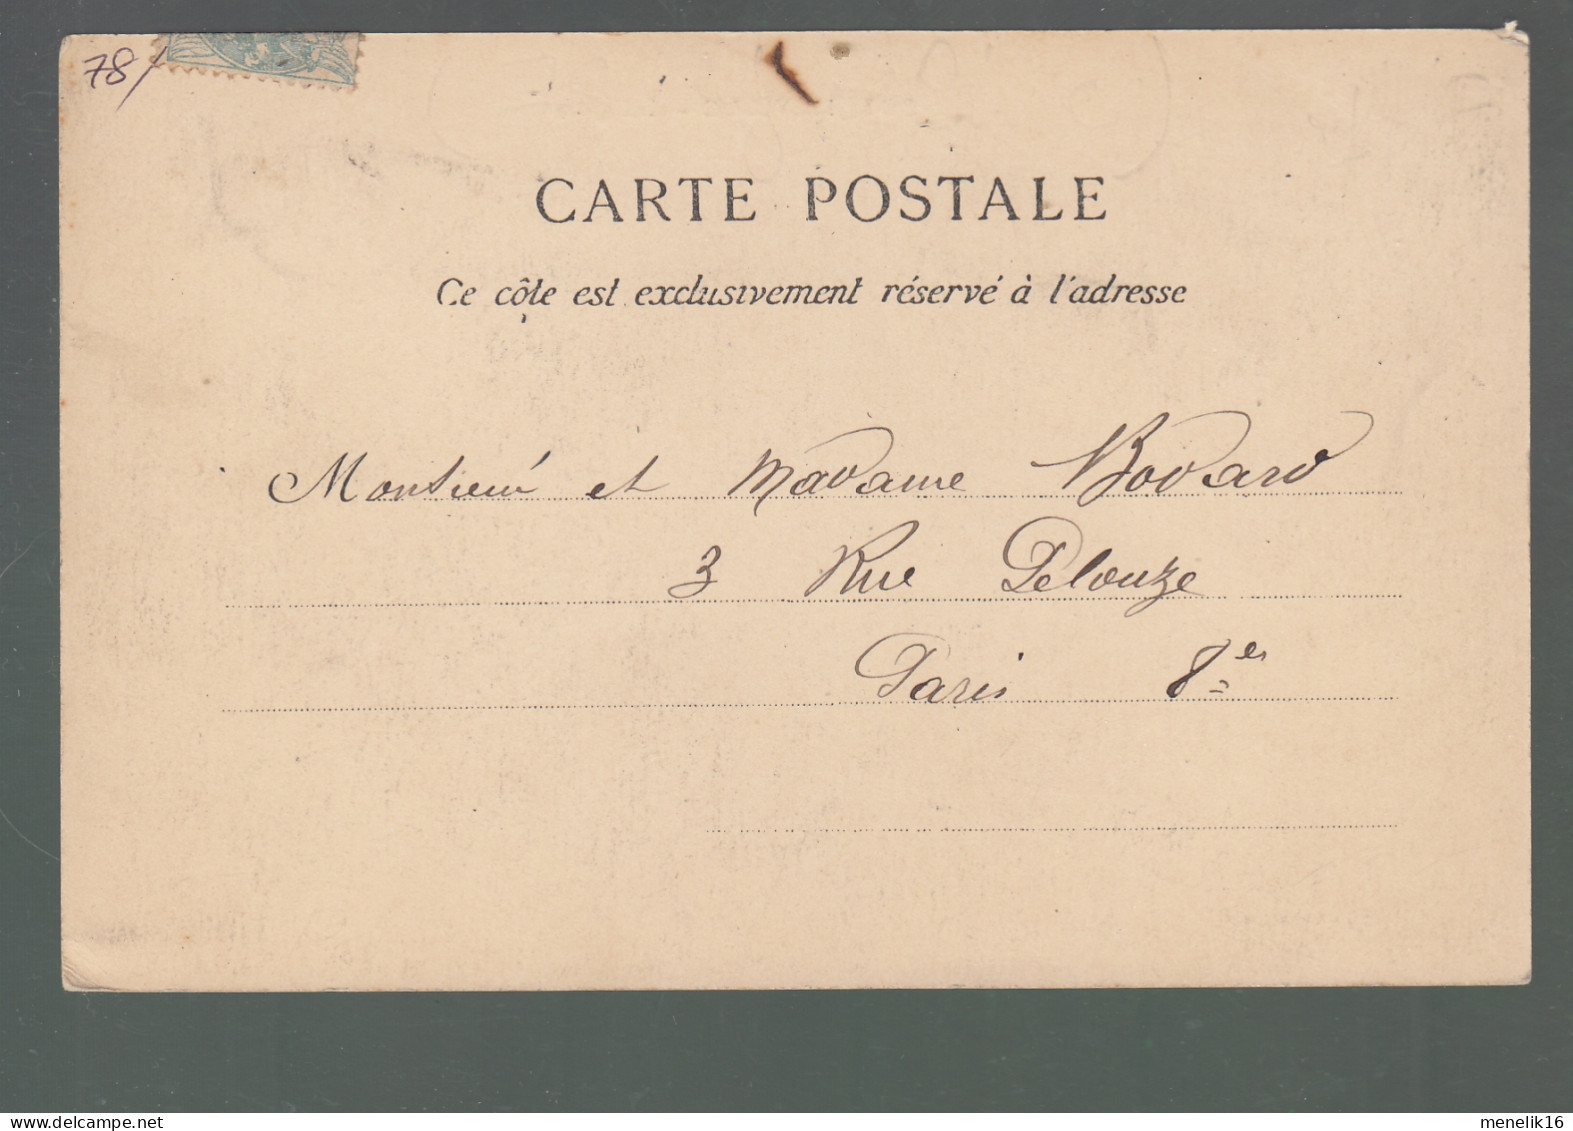 78/
CARTE POSTALE
Ce côte est exclusivement réservé à l'adresse
Monsieur et Madame Bodard
3 Rue Pelouze
Paris 8es
menelik16